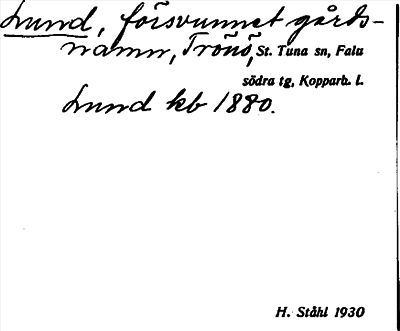 Lund, försvunnet gårds-
namn, Trönö, St. Tuna sn, Falu
södra tg, Kopparb. l.
Lund kb 1880.
H. Ståhl 1930